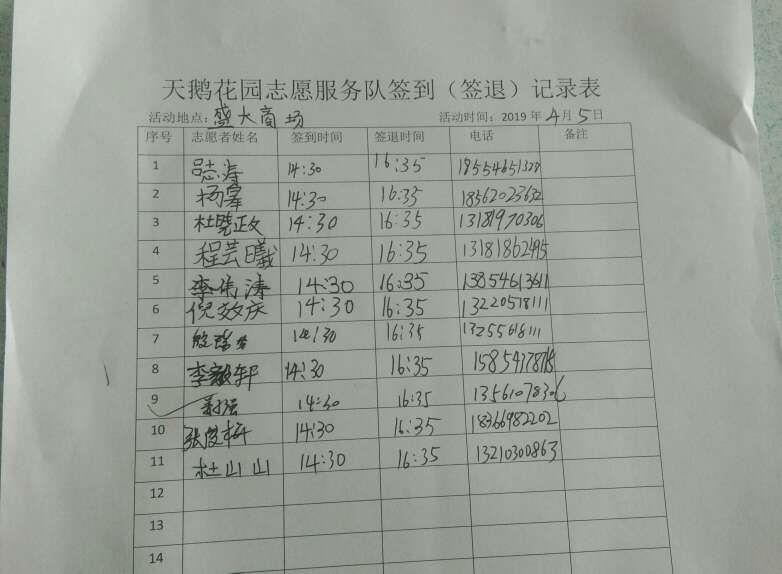 天鹅花园志愿服务队签到（签退）记录表
活动地点：盛大商场 活动时间：2019 年 4 月 5 日
序号 志愿者姓名 签到时间 签退时间 电话 备注
1 吕志涛 14:30 16:35 18554651328
2 杨 14:30 16:35 18562023632
3 杜晓正文 14:30 16:35 13181970306
4 程芸曦 14:30 16:35 13181862495
5 李伟涛 14:30 16:35 13854613611
6 倪效庆 14:30 16:35 13220518111
7 14:30 16:35 13255618111
8 李毅轩 14:30 16:35 15854178718
9 14:30 16:35 13561078306
10 张俊梅 14:30 16:35 18366982202
11 杜山山 14:30 16:35 13210300863
12
13
14